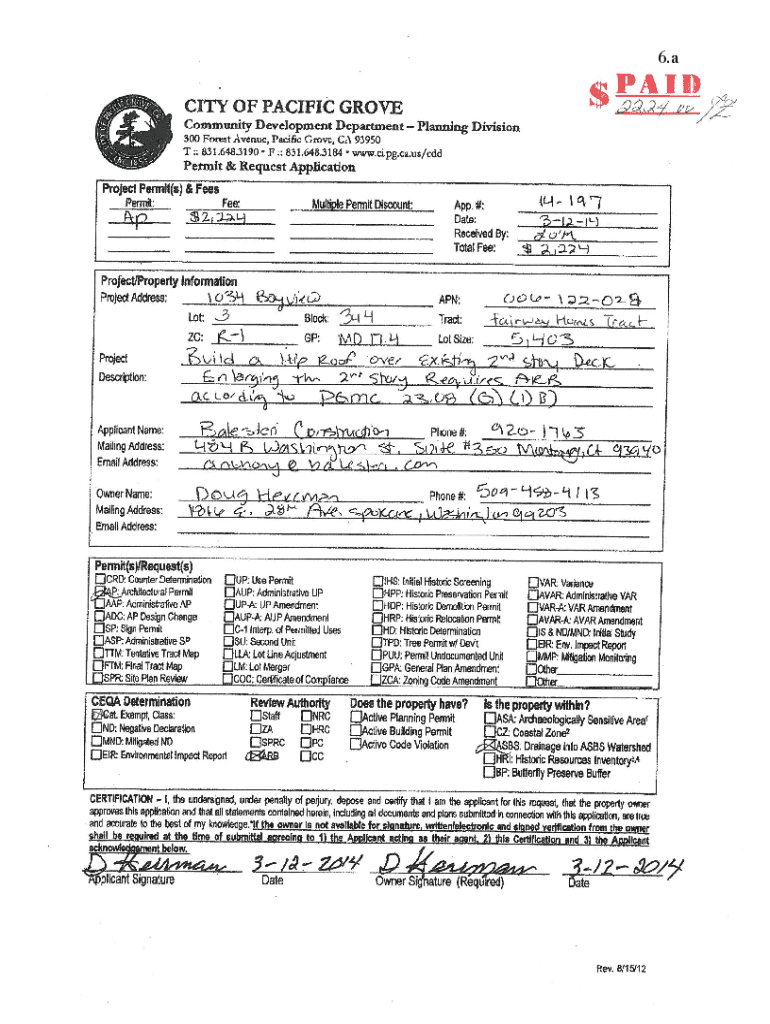 6.a
$ PAID
2224 00
CITY OF PACIFIC GROVE
Community Development Department – Planning Division
300 Forest Avenue, Pacific Grove, CA 93950
T :: 831.648.3190 • F :: 831.648.3184 • www.ci.pg.ca.us/cdd
Permit & Request Application
Project Permit(s) & Fees
Permit: Fee: Multiple Permit Discount: App. #: 14-197
AP $2,224 Date: 3-12-14
Received By:
Total Fee: $ 2,224
Project/Property Information
Project Address: 1034 Bayview APN: 006-122-028
Lot: 3 Block: 344 Tract: Fairway Homes Tract
ZC: R-1 GP: MD 17.4 Lot Size: 5,403
Project Description: Build a Hip Roof over Existing 2nd story Deck
Enlarging the 2nd story Requires ARB
according to PGMC 23.08 (G)(1)B)
Applicant Name: Balesteri Construction Phone #: 920-1763
Mailing Address: 484 B Washington St. Suite #350 Monterey, CA 93940
Email Address: anthony@balester.com
Owner Name: Doug Herrman Phone #: 509-458-4113
Mailing Address: 1816 G. 28th Ave. Spokane, Washington 99203
Email Address:
Permit(s)/Request(s)
CRD: Counter Determination UP: Use Permit IHS: Initial Historic Screening VAR: Variance
AP: Architectural Permit AUP: Administrative UP HPP: Historic Preservation Permit AVAR: Administrative VAR
AAP: Administrative AP UP-A: UP Amendment HDP: Historic Demolition Permit VAR-A: VAR Amendment
ADC: AP Design Change AUP-A: AUP Amendment HRP: Historic Relocation Permit AVAR-A: AVAR Amendment
SP: Sign Permit C-1 Interp. of Permitted Uses HD: Historic Determination IS & ND/MND: Initial Study
ASP: Administrative SP SU: Second Unit TPD: Tree Permit w/ Dev't EIR: Env. Impact Report
TTM: Tentative Tract Map LLA: Lot Line Adjustment PUU: Permit Undocumented Unit MMP: Mitigation Monitoring
FTM: Final Tract Map LM: Lot Merger GPA: General Plan Amendment Other
SPR: Site Plan Review COC: Certificate of Compliance ZCA: Zoning Code Amendment Other
CEQA Determination Review Authority Does the property have? Is the property within?
Cat. Exempt, Class: Staff NRC Active Planning Permit ASA: Archaeologically Sensitive Area
ND: Negative Declaration ZA HRC Active Building Permit CZ: Coastal Zone
MND: Mitigated ND SPRC PC Active Code Violation ASBS: Drainage into ASBS Watershed
EIR: Environmental Impact Report ARB CC HRI: Historic Resources Inventory
BP: Butterfly Preserve Buffer
CERTIFICATION – I, the undersigned, under penalty of perjury, depose and certify that I am the applicant for this request, that the property owner
approves this application and that all statements contained herein, including all documents and plans submitted in connection with this application, are true
and accurate to the best of my knowledge. *If the owner is not available for signature, written/electronic and signed verification from the owner
shall be required at the time of submittal agreeing to 1) the Applicant acting as their agent, 2) this Certification and 3) the Applicant
acknowledgement below.
D Herrman 3-12-2014 D Herrman 3-12-2014
Applicant Signature Date Owner Signature (Required) Date
Rev. 8/15/12